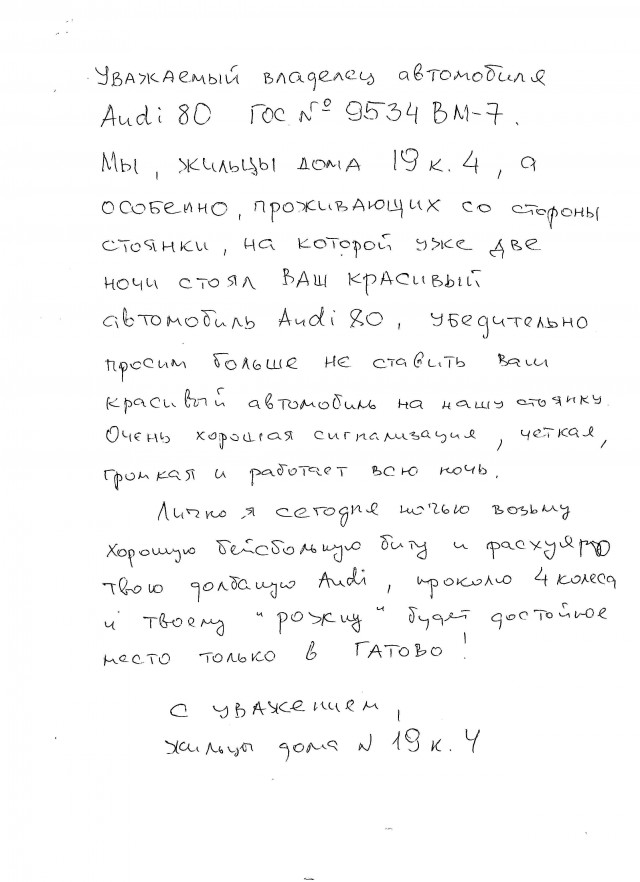 Уважаемый владелец автомобиля
Audi 80 Гос № 9534 ВМ-7.
Мы, жильцы дома 19 к. 4, а
особенно, проживающих со стороны
стоянки, на которой уже две
ночи стоял Ваш красивый
автомобиль Audi 80, убедительно
просим больше не ставить Ваш
красивый автомобиль на нашу стоянку.
Очень хорошая сигнализация, четкая,
громкая и работает всю ночь.
Лично я сегодня ночью возьму
хорошую бейсбольную биту и расхуярю
твою долбаную Audi, проколю 4 колеса
и твоему "рожну" будет достойное
место только в ГАТОВО!
С уважением,
жильцы дома N 19 к. 4